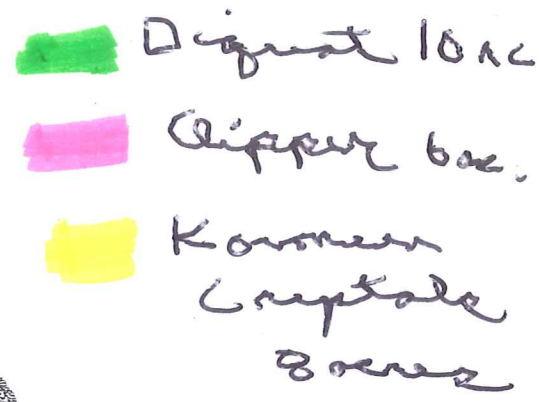 Diquat 10 ac
Clipper 6 ac.
Komeen
Crystals
8 acres